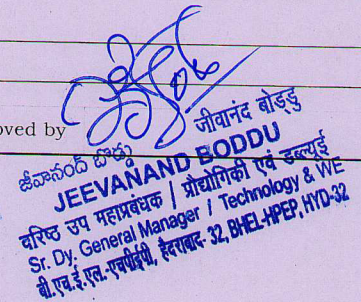 oved by
जीवानंद बोड्डु
జీవానంద్ బొడ్డు
JEEVANAND BODDU
वरिष्ठ उप महाप्रबंधक / प्रौद्योगिकी एवं डब्ल्यूई
Sr. Dy. General Manager / Technology & WE
बी.एच.ई.एल.-एचपीईपी, हैदराबाद- 32, BHEL-HPEP, HYD-32